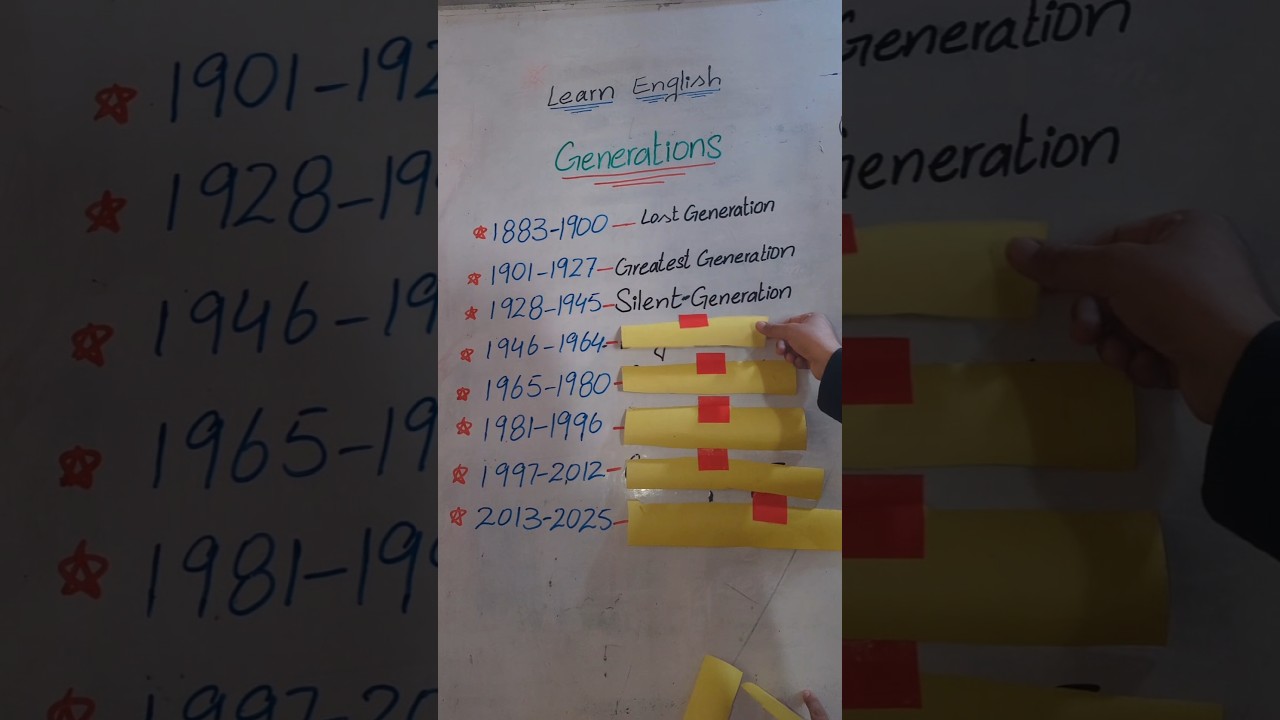 Learn English
Generations
1883-1900 — Lost Generation
1901-1927 — Greatest Generation
1928-1945 — Silent-Generation
1946-1964 —
1965-1980 —
1981-1996 —
1997-2012 —
2013-2025 —